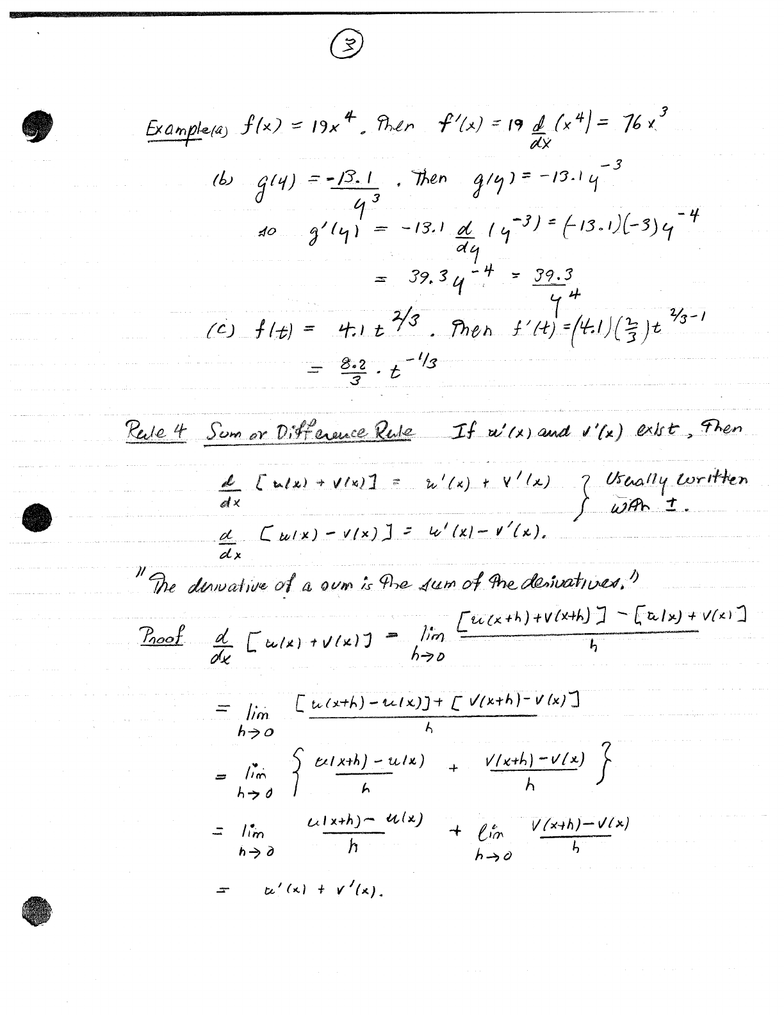 3
Example (a) f(x) = 19x^4. Then f'(x) = 19 d/dx (x^4) = 76x^3
(b) g(y) = -13.1/y^3. Then g(y) = -13.1y^-3
so g'(y) = -13.1 d/dy (y^-3) = (-13.1)(-3)y^-4
= 39.3y^-4 = 39.3/y^4
(c) f(t) = 4.1t^2/3. Then f'(t) = (4.1)(2/3)t^2/3-1
= 8.2/3 · t^-1/3
Rule 4 Sum or Difference Rule If u'(x) and v'(x) exist, Then
d/dx [u(x) + v(x)] = u'(x) + v'(x) } Usually written
with ±.
d/dx [u(x) - v(x)] = u'(x) - v'(x).
"The derivative of a sum is the sum of the derivatives."
Proof d/dx [u(x) + v(x)] = lim h→0 [u(x+h) + v(x+h)] - [u(x) + v(x)] / h
= lim h→0 [u(x+h) - u(x)] + [v(x+h) - v(x)] / h
= lim h→0 { u(x+h) - u(x) / h + v(x+h) - v(x) / h }
= lim h→0 u(x+h) - u(x) / h + lim h→0 v(x+h) - v(x) / h
= u'(x) + v'(x).